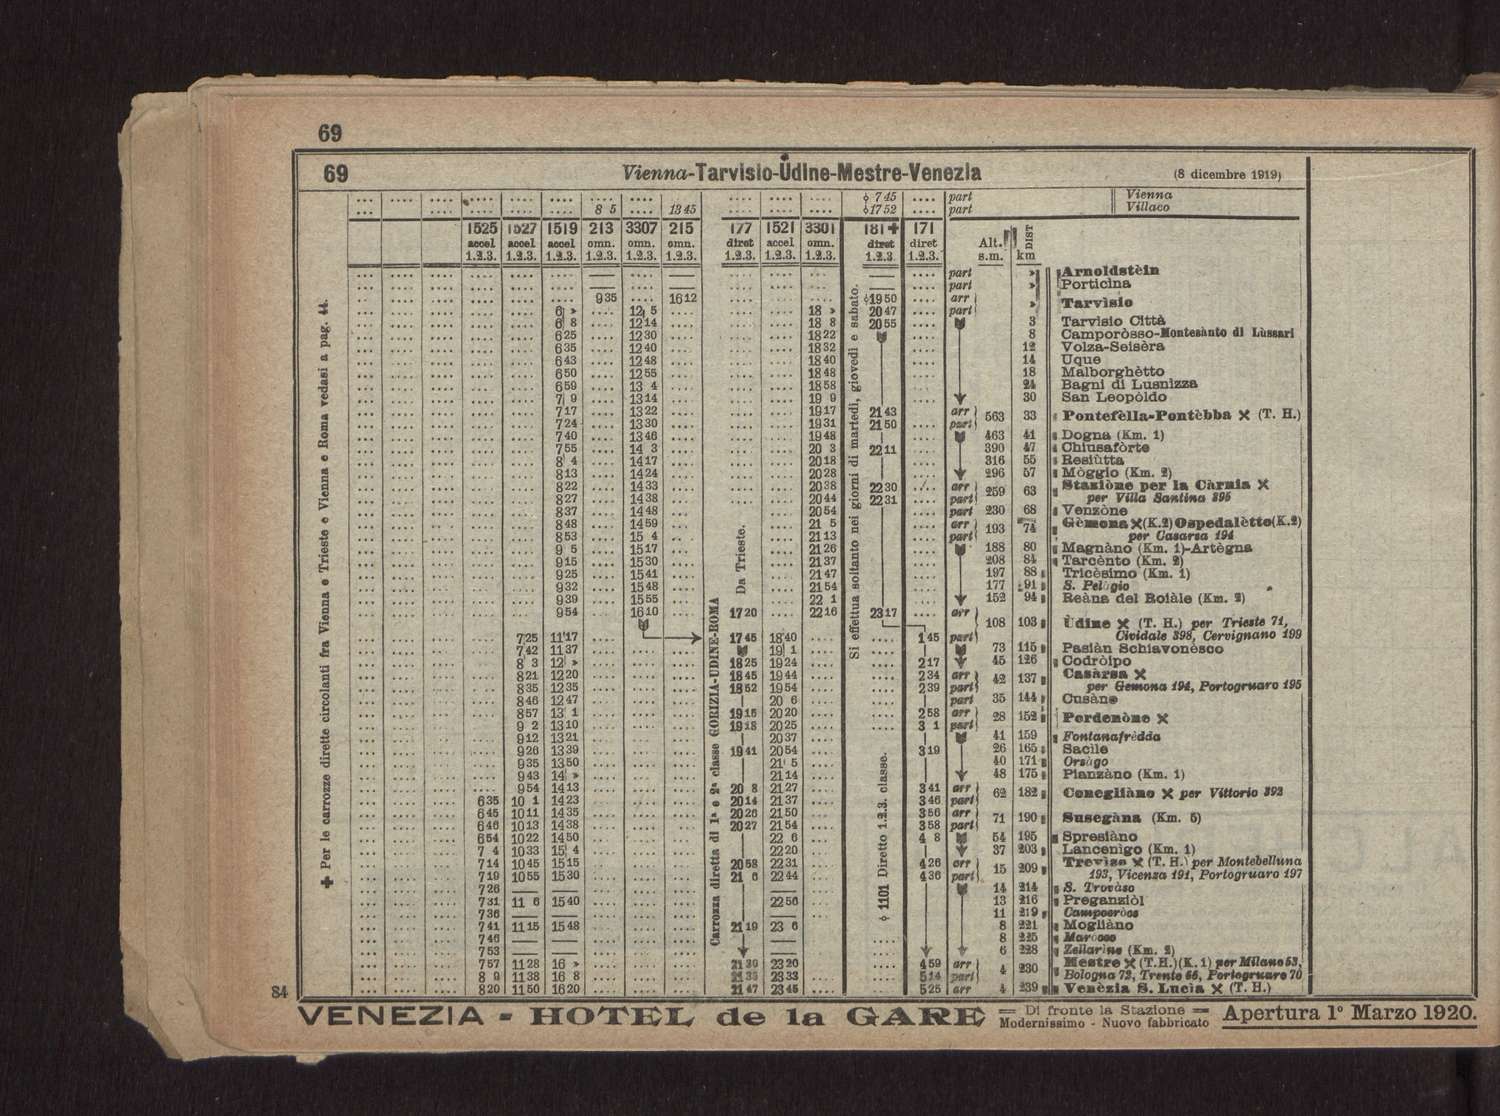 69
69 Vienna-Tarvisio-Udine-Mestre-Venezia (8 dicembre 1919)
✚ Per le carrozze dirette circolanti fra Vienna e Trieste e Vienna e Roma vedasi a pag. 44.
.... .... .... .... .... .... .... .... .... .... .... .... ϕ 7 45 .... part Vienna
.... .... .... .... .... .... 8 5 .... 13 45 .... .... .... ϕ 17 52 .... part Villaco
1525 1527 1519 213 3307 215 177 1521 3301 181 ✚ 171
accel accel accel omn. omn. omn. diret accel omn. diret diret Alt. DIST
1.2.3. 1.2.3. 1.2.3. 1.2.3. 1.2.3. 1.2.3. 1.2.3. 1.2.3. 1.2.3. 1.2.3. 1.2.3. s.m. km
part » Arnoldstèin
part » Porticina
9 35 16 12 ϕ 19 50 arr » Tarvìsio
6 » 12 5 18 » 20 47 part
6 8 12 14 18 8 20 55 3 Tarvisio Città
6 25 12 30 18 22 8 Camporòsso-Montesànto di Lùssari
6 35 12 40 18 32 12 Volza-Seisèra
6 43 12 48 18 40 14 Uque
6 50 12 55 18 48 18 Malborghètto
6 59 13 4 18 58 24 Bagni di Lusnizza
7 9 13 14 19 9 30 San Leopòldo
7 17 13 22 19 17 21 43 arr 563 33 Pontefèlla-Pontèbba ✕ (T. H.)
7 24 13 30 19 31 21 50 part
7 40 13 46 19 48 463 41 Dogna (Km. 1)
7 55 14 3 20 3 22 11 390 47 Chiusafòrte
8 4 14 17 20 18 316 55 Resiùtta
8 13 14 24 20 28 296 57 Mòggio (Km. 2)
8 22 14 33 20 38 22 30 arr 259 63 Staziòne per la Càrnia ✕
8 27 14 38 20 44 22 31 part per Villa Santina 395
8 37 14 48 20 54 part 230 68 Venzòne
8 48 14 59 21 5 arr 193 74 Gèmona ✕ (K.2) Ospedalètto (K.2)
8 53 15 4 21 13 part per Casarsa 194
9 5 15 17 21 26 188 80 Magnàno (Km. 1)-Artègna
9 15 15 30 21 37 208 84 Tarcènto (Km. 2)
9 25 15 41 21 47 197 88 Tricèsimo (Km. 1)
9 32 15 48 21 54 177 91 S. Pelàgio
9 39 15 55 22 1 152 94 Reàna del Roiàle (Km. 2)
9 54 16 10 17 20 22 16 23 17 arr 108 103 Ùdine ✕ (T. H.) per Trieste 71,
7 25 11 17 17 45 18 40 1 45 part Cividale 398, Cervignano 199
7 42 11 37 19 1 73 115 Pasiàn Schiavonésco
8 3 12 » 18 25 19 24 2 17 45 126 Codròipo
8 21 12 20 18 45 19 44 2 34 arr 42 137 Casàrsa ✕
8 35 12 35 18 52 19 54 2 39 part per Gemona 194, Portogruaro 195
8 46 12 47 20 6 35 144 Cusàno
8 57 13 1 19 16 20 20 2 58 arr 28 152 Pordenòne ✕
9 2 13 10 19 18 20 25 3 1 part
9 12 13 21 20 37 41 159 Fontanafrèdda
9 26 13 39 19 41 20 54 3 19 26 165 Sacile
9 35 13 50 21 5 40 171 Orsàgo
9 43 14 » 21 14 48 175 Pianzàno (Km. 1)
9 54 14 13 20 8 21 27 3 41 arr 62 182 Conegliàno ✕ per Vittorio 392
6 35 10 1 14 23 20 14 21 37 3 46 part
6 45 10 11 14 35 20 26 21 50 3 56 arr 71 190 Susegàna (Km. 5)
6 46 10 13 14 38 20 27 21 54 3 58 part
6 54 10 22 14 50 22 6 4 8 54 195 Spresiàno
7 4 10 33 15 4 22 20 37 203 Lancenìgo (Km. 1)
7 14 10 45 15 15 20 58 22 31 4 26 arr 15 209 Treviso ✕ (T. H.) per Montebelluna
7 19 10 55 15 30 21 6 22 44 4 36 part 193, Vicenza 191, Portogruaro 197
7 26 14 214 S. Trovàso
7 31 11 6 15 40 22 56 13 216 Preganziòl
7 36 11 219 Campocròce
7 41 11 15 15 48 21 19 23 6 8 221 Mogliàno
7 46 8 225 Marocco
7 53 6 228 Zellarìno (Km. 2)
7 57 11 28 16 » 21 30 23 20 4 59 arr 4 230 Mestre ✕ (T.H.)(K. 1) per Milano 53,
8 9 11 38 16 8 21 35 23 33 5 14 part Bologna 72, Trento 66, Portogruaro 70
8 20 11 50 16 20 21 47 23 45 5 25 arr 4 239 Venèzia S. Lucìa ✕ (T. H.)
Carrozza diretta di 1ª e 2ª classe GORIZIA-UDINE-ROMA
Da Trieste.
Si effettua soltanto nei giorni di martedì, giovedì e sabato.
ϕ 1101 Diretto 1.2.3. classe.
84
VENEZIA - HOTEL de la GARE = Di fronte la Stazione = Apertura 1º Marzo 1920.
Modernissimo - Nuovo fabbricato